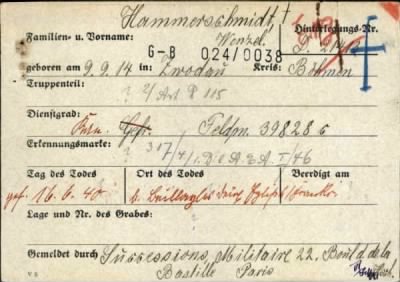 Hammerschmidt,
Familien- u. Vorname: Wenzel Hinterlegungs-Nr.
G-B 024/0038
geboren am 9.9.14 in: Zwodau Kreis: Böhmen
Truppenteil: ? 2/Art P 115
Dienstgrad: Gefr. Feldpn. 39828 c
Erkennungsmarke: ? 317/4/1.D.A.E.A. I/46
Tag des Todes Ort des Todes Beerdigt am
gef. 16.6.40
Lage und Nr. des Grabes:
Gemeldet durch Successions, Militaire 22. Boul d. de la
Bastille Paris